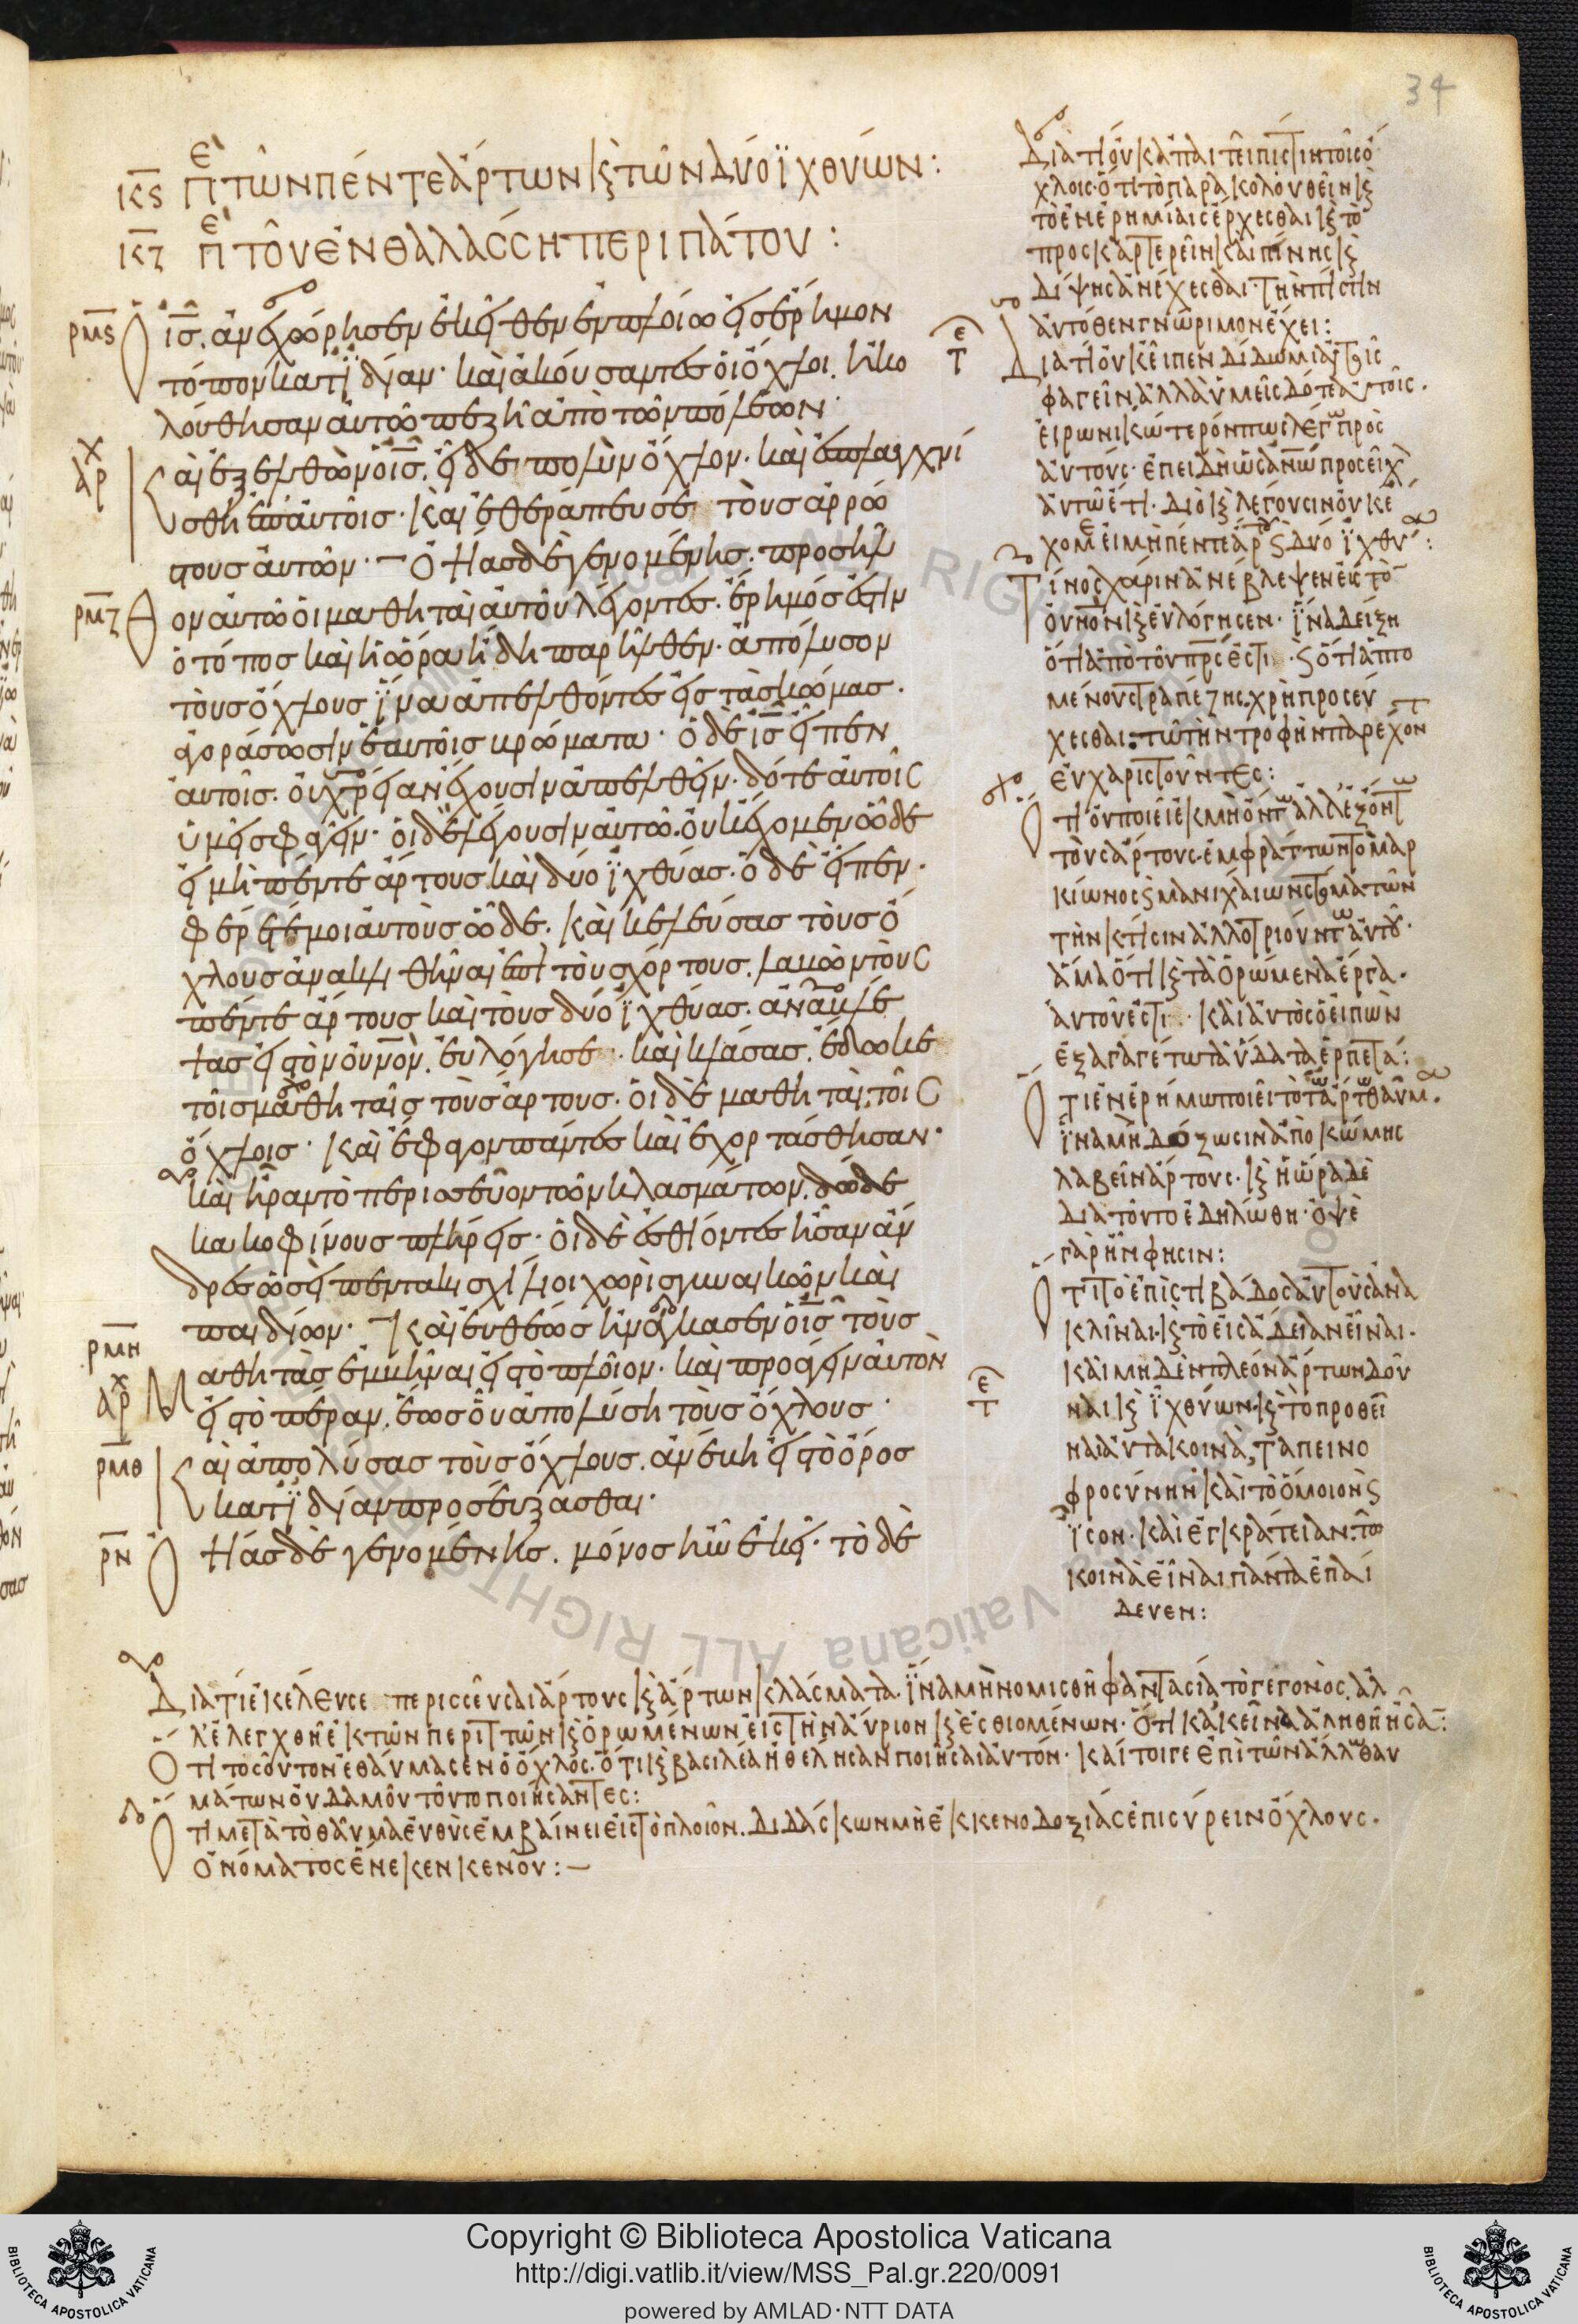 34
κϛ πε τῶν πέντε ἄρτων κ τῶν δύο ἰχθύων:
κζ πε τοῦ ἐν θαλάσση περιπάτου:
ρμϛ ις. ἀνεχώρησεν ἐκεῖθεν ἐν πλοίω εἰς ἔρημον
τόπον κατ ϊδίαν· καὶ ἀκούσαντες οἱ ὄχλοι. ἠκο
λούθησαν αὐτῶ πεζῆ ἀπὸ τῶν πόλεων·
αὶ ἐξελθὼν ὁ ις. εἶδε πολὺν ὄχλον. καὶ ἐσπλαγχνί
σθη ἐπ αὐτοῖς· καὶ ἐθεράπευσε τοὺς ἀρρώ
στους αὐτῶν· Ὀψίας δὲ γενομένης. προσῆλ
ρμζ θον αὐτῶ οἱ μαθηταὶ αὐτοῦ λέγοντες. ἔρημός ἐστιν
ὁ τόπος καὶ ἡ ὥρα ἤδη παρῆλθεν. ἀπόλυσον
τοὺς ὄχλους ἵνα ἀπελθόντες εἰς τὰς κώμας.
ἀγοράσωσιν ἑαυτοῖς βρώματα· ὁ δὲ ις εἶπεν
αὐτοῖς. οὐ χρείαν ἔχουσιν ἀπελθεῖν. δότε αὐτοῖς
ὑμεῖς φαγεῖν· οἱ δὲ λέγουσιν αὐτῶ. οὐκ ἔχομεν ὧδε
εἰ μὴ πέντε ἄρτους καὶ δύο ἰχθύας. ὁ δὲ εἶπεν.
φέρετέ μοι αὐτοὺς ὧδε. καὶ κελεύσας τοὺς ὄ
χλους ἀνακλιθῆναι ἐπὶ τοὺς χόρτους. λαβὼν τοὺς
πέντε ἄρτους καὶ τοὺς δύο ἰχθύας. ἀναβλέ
ψας εἰς τὸν οὐνον. εὐλόγησε. καὶ κλάσας. ἔδωκε
τοῖς μαθηταῖς τοὺς ἄρτους. οἱ δὲ μαθηταὶ τοῖς
ὄχλοις· καὶ ἔφαγον πάντες καὶ ἐχορτάσθησαν·
καὶ ἦραν τὸ περισσεῦον τῶν κλασμάτων. δώδε
κα κοφίνους πλήρεις· οἱ δὲ ἐσθίοντες ἦσαν ἄν
δρες ὡσεὶ πεντακισχίλιοι χωρὶς γυναικῶν καὶ
παιδίων· Καὶ εὐθέως ἠνάγκασεν ὁ ις τοὺς
ρμη Μαθητὰς ἐμβῆναι εἰς τὸ πλοῖον. καὶ προάγειν αὐτὸν
εἰς τὸ πέραν. ἕως οὗ ἀπολύση τοὺς ὄχλους·
ρμθ αὶ ἀπολύσας τοὺς ὄχλους. ἀνέβη εἰς τὸ ὄρος
κατ ϊδίαν προσεύξασθαι·
ρν Ὀψίας δὲ γενομένης. μόνος ἦν ἐκεῖ· τὸ δὲ
Διατί οὐκ ἀπαιτεῖ πίστιν τοῖς ὄ
χλοις· ὅτι τὸ παρακολουθεῖν κ
τὸ ἐν ἐρημίαις ἔρχεσθαι κ τὸ
προσκαρτερεῖν καὶ πίνης κ
δίψης ἀνέχεσθαι· τὴν πίστιν
αὐτόθεν γνώριμον ἔχει:
Διατί οὐκ εἶπεν δίδωμι αὐτοῖς
φαγεῖν ἀλλὰ ὑμεῖς δότε αὐτοῖς.
εἰρωνικώτερόν πως λέγ πρὸς
αὐτούς· ἐπειδὴ ὡς ἀνω προσεῖχ
αὐτῶ ἔτι. διὸ κ λέγουσιν οὐκ ἔ
χομε εἰ μὴ πέντε ἄρ ϛ δύο ἰχθύ:
Τίνος χάριν ἀνέβλεψεν εἰς τὸ
οὐνον κ εὐλόγησεν· ἵνα δείξη
ὅτι ἀπὸ τοῦ πρς ἐστι· ϛ ὅτι ἁπτο
μένους τραπέζης. χρὴ προσεύ
χεσθαι· τῶ τὴν τροφὴν παρέχον
εὐχαριστοῦντες:
τοὺς ἄρτους. ἐμφράττων τὸ μαρ
κίωνος ϛ μανιχαίων στόματων
τὴν κτίσιν ἀλλοτριούντ αὐτοῦ·
ἅμα ὅτι κ τὰ ὁρώμενα ἔργα.
αὐτοῦ ἐστι· καὶ αὐτὸς ὁ εἰπὼν
ἐξαγαγέτω τὰ ὕδατα ἑρπετά:
τί ἐν ἐρήμω ποιεῖ τὸ τῶ ἄρτ θαῦμ.
ἵνα μὴ δόξωσιν ἀπὸ κώμης
λαβεῖν ἄρτους. κ ἡ ὥρα δὲ
διατοῦτο ἐδηλώθη· ὀψὲ
γὰρ ἦν φησιν:
τί τὸ ἐπὶ στιβάδος αὐτοὺς ἀνα
κλῖναι. κ τὸ εἰς ἄδειαν εἶναι.
καὶ μηδὲν πλέον ἄρτων δοῦ
ναι κ ἰχθύων. κ τὸ προθεῖ
ναι αὐτὰ κοινὰ, ταπεινο
φροσύνην καὶ τὸ ὅμοιον ϛ
ἴσον. καὶ ἐγκράτειαν. τῶ
κοινὰ εἶναι πάντα ἐπαί
δευεν:
Διατί ἐκέλευσε περισσεῦσαι ἄρτους κ ἄρτων κλάσματα. ἵνα μὴ νομισθῆ φαντασία τὸ γεγονὸς. ἀλ
λ ἐλεγχθῆ ἐκ τῶν περιττῶν κ ὁρωμένων εἰς τὴν αὔριον κ ἐσθιομένων· ὅτι κἀκεῖνα ἀληθῆ ἦσα:
Ὅτι τοσοῦτον ἐθαύμασεν ὁ ὄχλος. ὅτι κ βασιλέα ἠθέλησαν ποιῆσαι αὐτόν· καίτοιγε ἐπὶ τῶν ἄλλω θαυ
μάτων οὐδαμοῦ τοῦτο ποιήσαντες:
τί μετὰ τὸ θαῦμα εὐθὺς ἐμβαίνει εἰς τὸ πλοῖον. διδάσκων μὴ ἐκ κενοδοξίας ἐπισύρειν ὄχλους.
ὀνόματος ἕνεκεν κενοῦ:
Copyright © Biblioteca Apostolica Vaticana
http://digi.vatlib.it/view/MSS_Pal.gr.220/0091
powered by AMLAD·NTT DATA